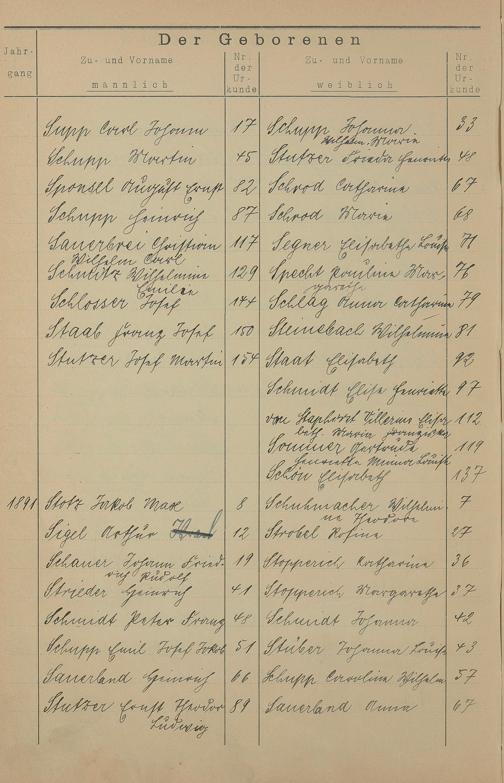 Der Geborenen
Jahr-
gang
Zu- und Vorname
männlich
Nr.
der
Ur-
kunde
Zu- und Vorname
weiblich
Nr.
der
Ur-
kunde
Supp Carl Johann 17 Schupp Johanna 33
Wilhelm. Marie
Schupp Martin 45 Stutzer Frieda Henriette 48
Sponsel August Ernst 82 Schrod Catharine 67
Schupp Heinrich 87 Schrod Marie 68
Sauerbrei Christian 117 Segner Elisabethe Louise 71
Wilhelm Carl
Schmitz Wilhelmine 129 Specht Pauline Mar- 76
Emilie garethe
Schlosser Josef 144 Schlag Anna Catharine 79
Staab Franz Josef 150 Steinebach Wilhelmine 81
Stutzer Josef Martin 154 Staat Elisabeth 92
Schmidt Elise Henriette 97
von Elisa 112
beth. Maria Franziska
Sommer Gertrude 119
Henriette Minna Louise
Schön Elisabeth 137
1891 Stotz Jakob Max 8 Schuhmacher Wilhelmi- 7
ne Theodore
Sigel Arthur 12 Strobel Rosine 27
Schauer Johann Fried- 19 Stopperich Katharine 36
rich Rudolf
Strieder Heinrich 41 Stopperich Margarethe 37
Schmidt Peter Franz 48 Schmidt Johanna 42
Schupp Emil Josef Jakob 51 Stüber Johanna Louise 43
Sauerland Heinrich 66 Schupp Caroline Wilhelm 57
Stutzer Ernst Theodor 89 Sauerland Anna 67
Ludwig